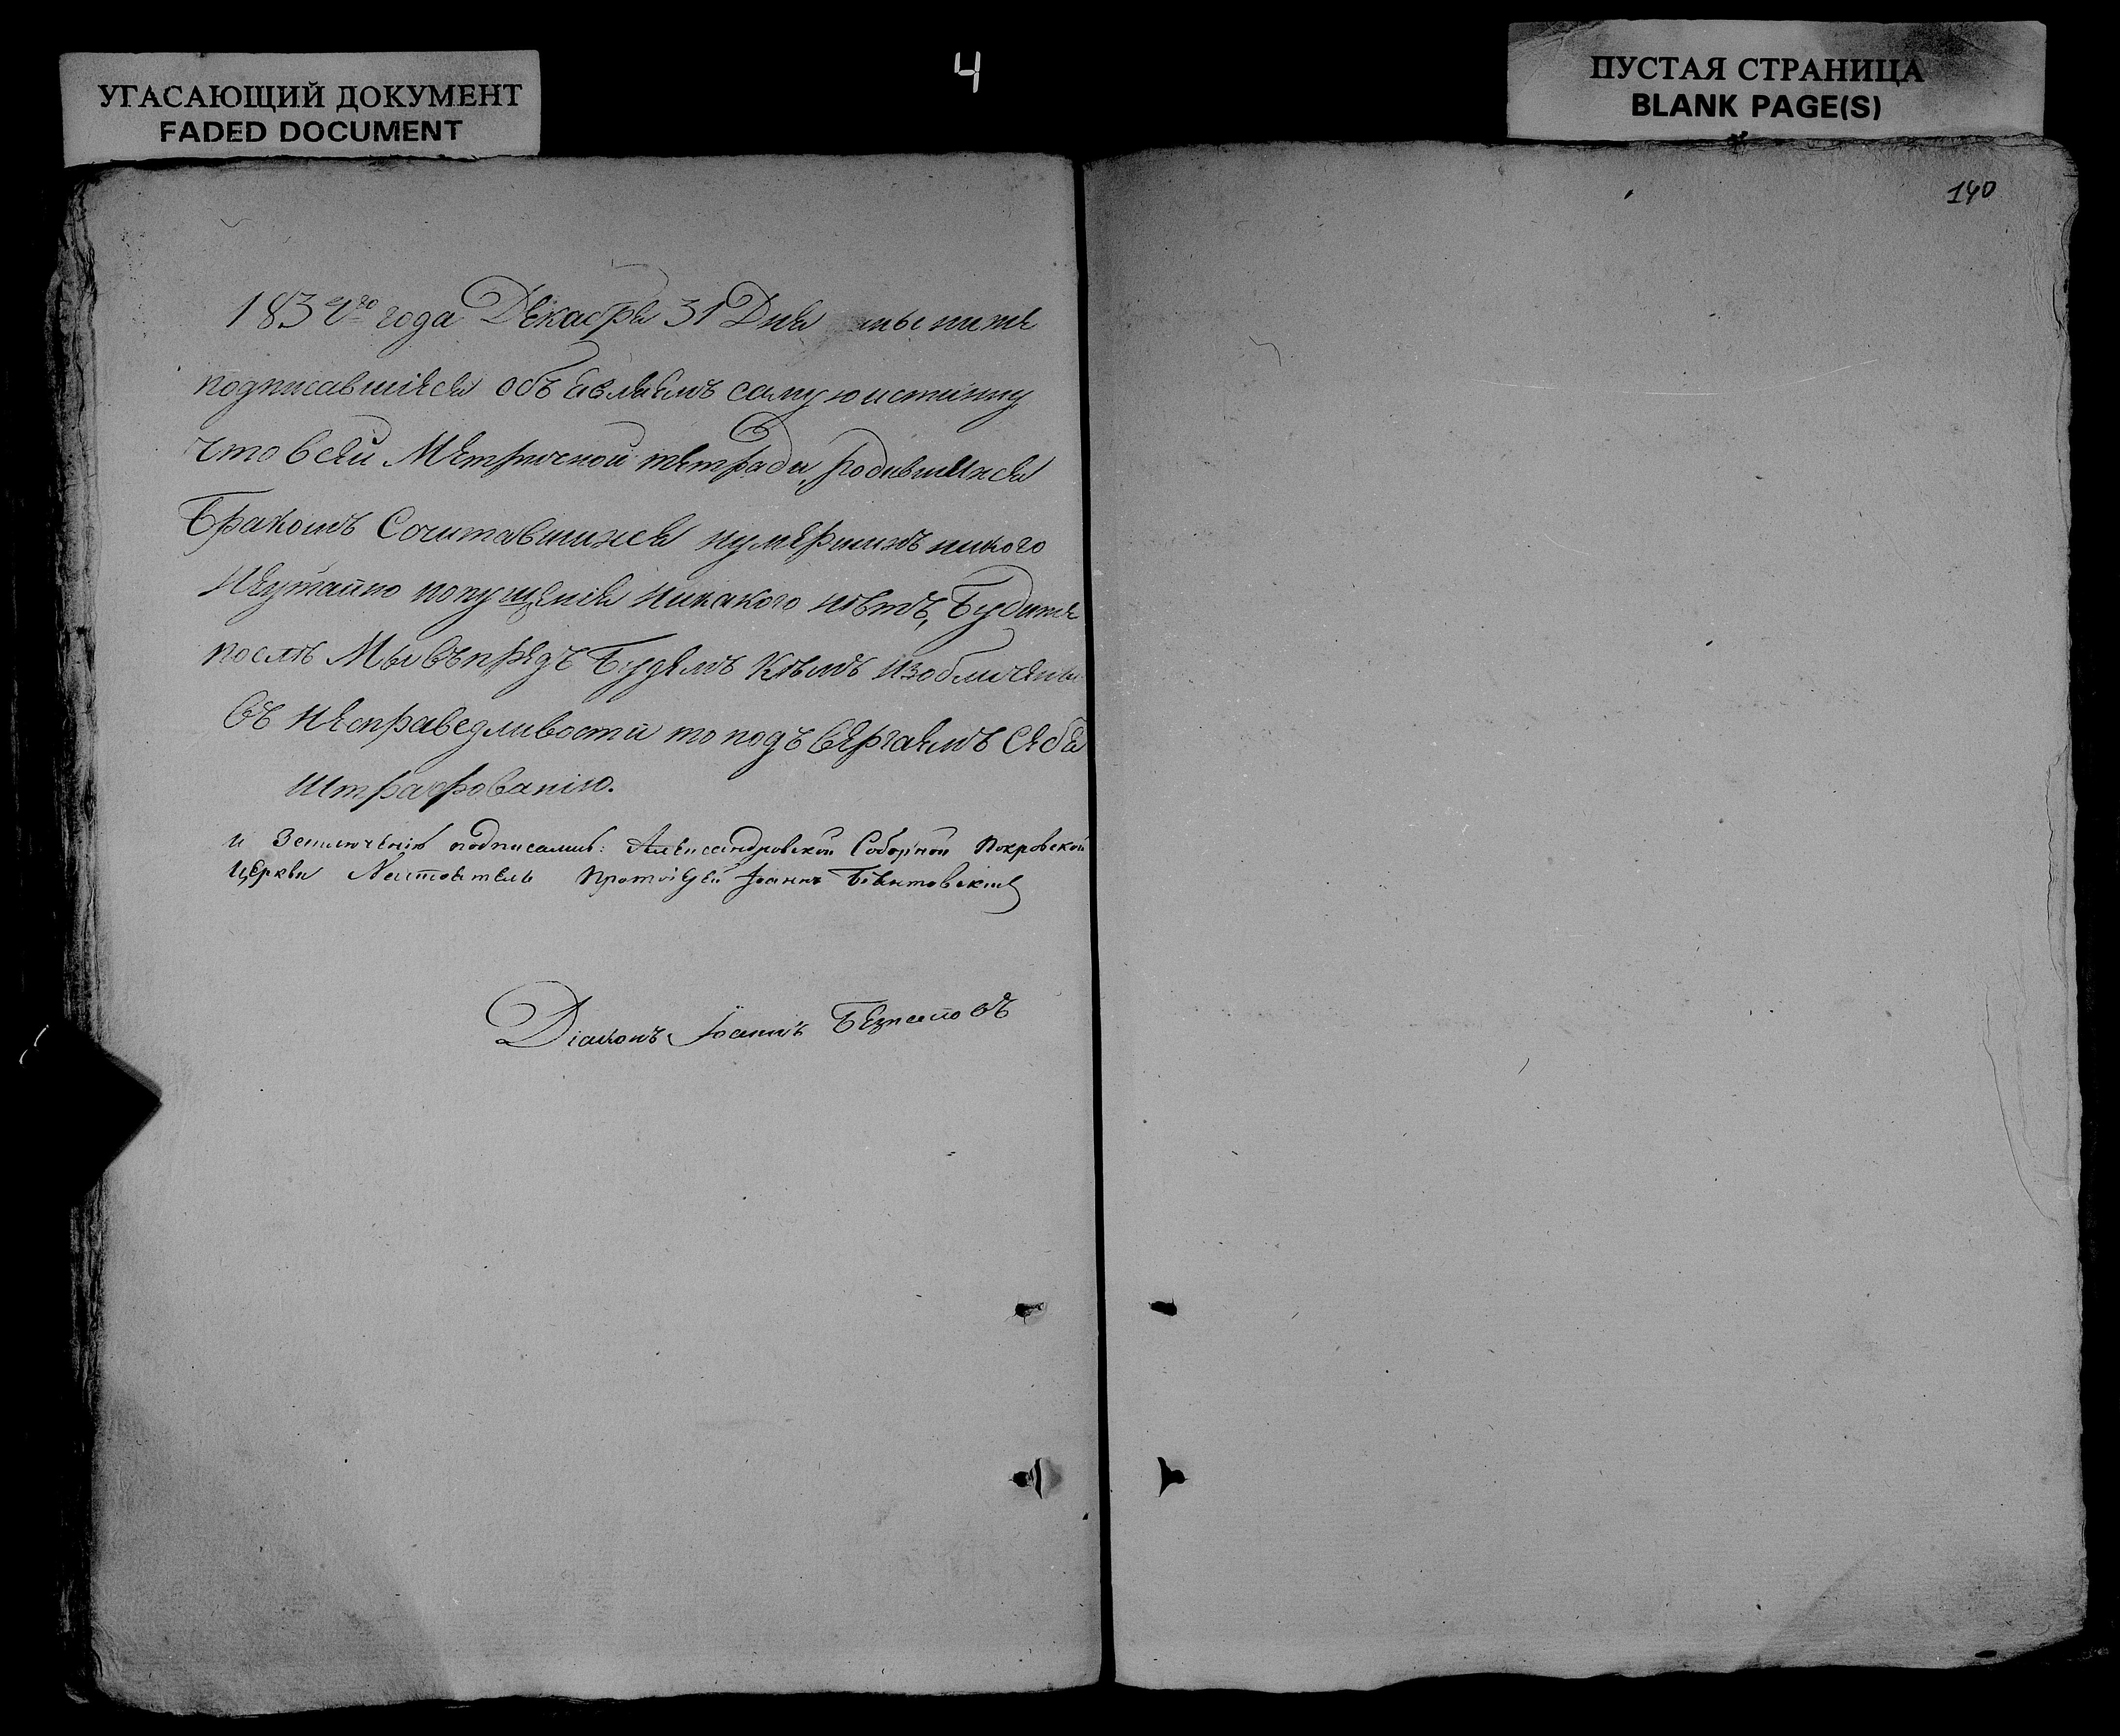 УГАСАЮЩИЙ ДОКУМЕНТ
FADED DOCUMENT
4
ПУСТАЯ СТРАНИЦА
BLANK PAGE(S)
140
года Декабря 31 Дня мы ниже
подписавшiеся объ являемъ самую истинну
что в сей Метричной тетради, родившихся
Бракомъ Сочитавшихся иумершихъ никого
Неутайно ипопущенiя никакого нѣтъ, Будитже
послѣ Мы въпредъ Будемъ Кѣмъ изобличены
Въ Несправедливости то подъ Вергаемъ Себя
Штрафованiю.
и подписались: Александровской Соборной Покровской
Церкви Настоятель Протоiерей Iоаннъ
Дiаконъ Iоаннъ